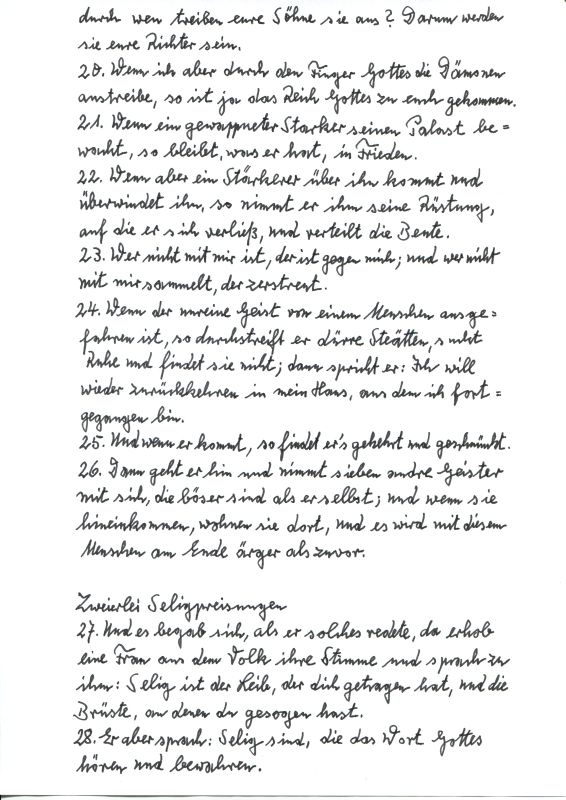 durch wen treiben eure Söhne sie aus? Darum werden
sie eure Richter sein.
20. Wenn ich aber durch den Finger Gottes die Dämonen
austreibe, so ist ja das Reich Gottes zu euch gekommen.
21. Wenn ein gewappneter Starker seinen Palast be=
wacht, so bleibt, was er hat, in Frieden.
22. Wenn aber ein Stärkerer über ihn kommt und
überwindet ihn, so nimmt er ihm seine Rüstung,
auf die er sich verließ, und verteilt die Beute.
23. Wer nicht mit mir ist, der ist gegen mich; und wer nicht
mit mir sammelt, der zerstreut.
24. Wenn der unreine Geist von einem Menschen ausge=
fahren ist, so durchstreift er dürre Steätten, sucht
Ruhe und findet sie nicht; dann spricht er: Ich will
wieder zurückkehren in mein Haus, aus dem ich fort=
gegangen bin.
25. Und wenn er kommt, so findet er's gekehrt und geschmückt.
26. Dann geht er hin und nimmt sieben andre Geister
mit sich, die böser sind als er selbst; und wenn sie
hineinkommen, wohnen sie dort, und es wird mit diesem
Menschen am Ende ärger als zuvor.

Zweierlei Seligpreisungen
27. Und es begab sich, als er solches redete, da erhob
eine Frau aus dem Volk ihre Stimme und sprach zu
ihm: Selig ist der Leib, der dich getragen hat, und die
Brüste, an denen du gesogen hast.
28. Er aber sprach: Selig sind, die das Wort Gottes
hören und bewahren.